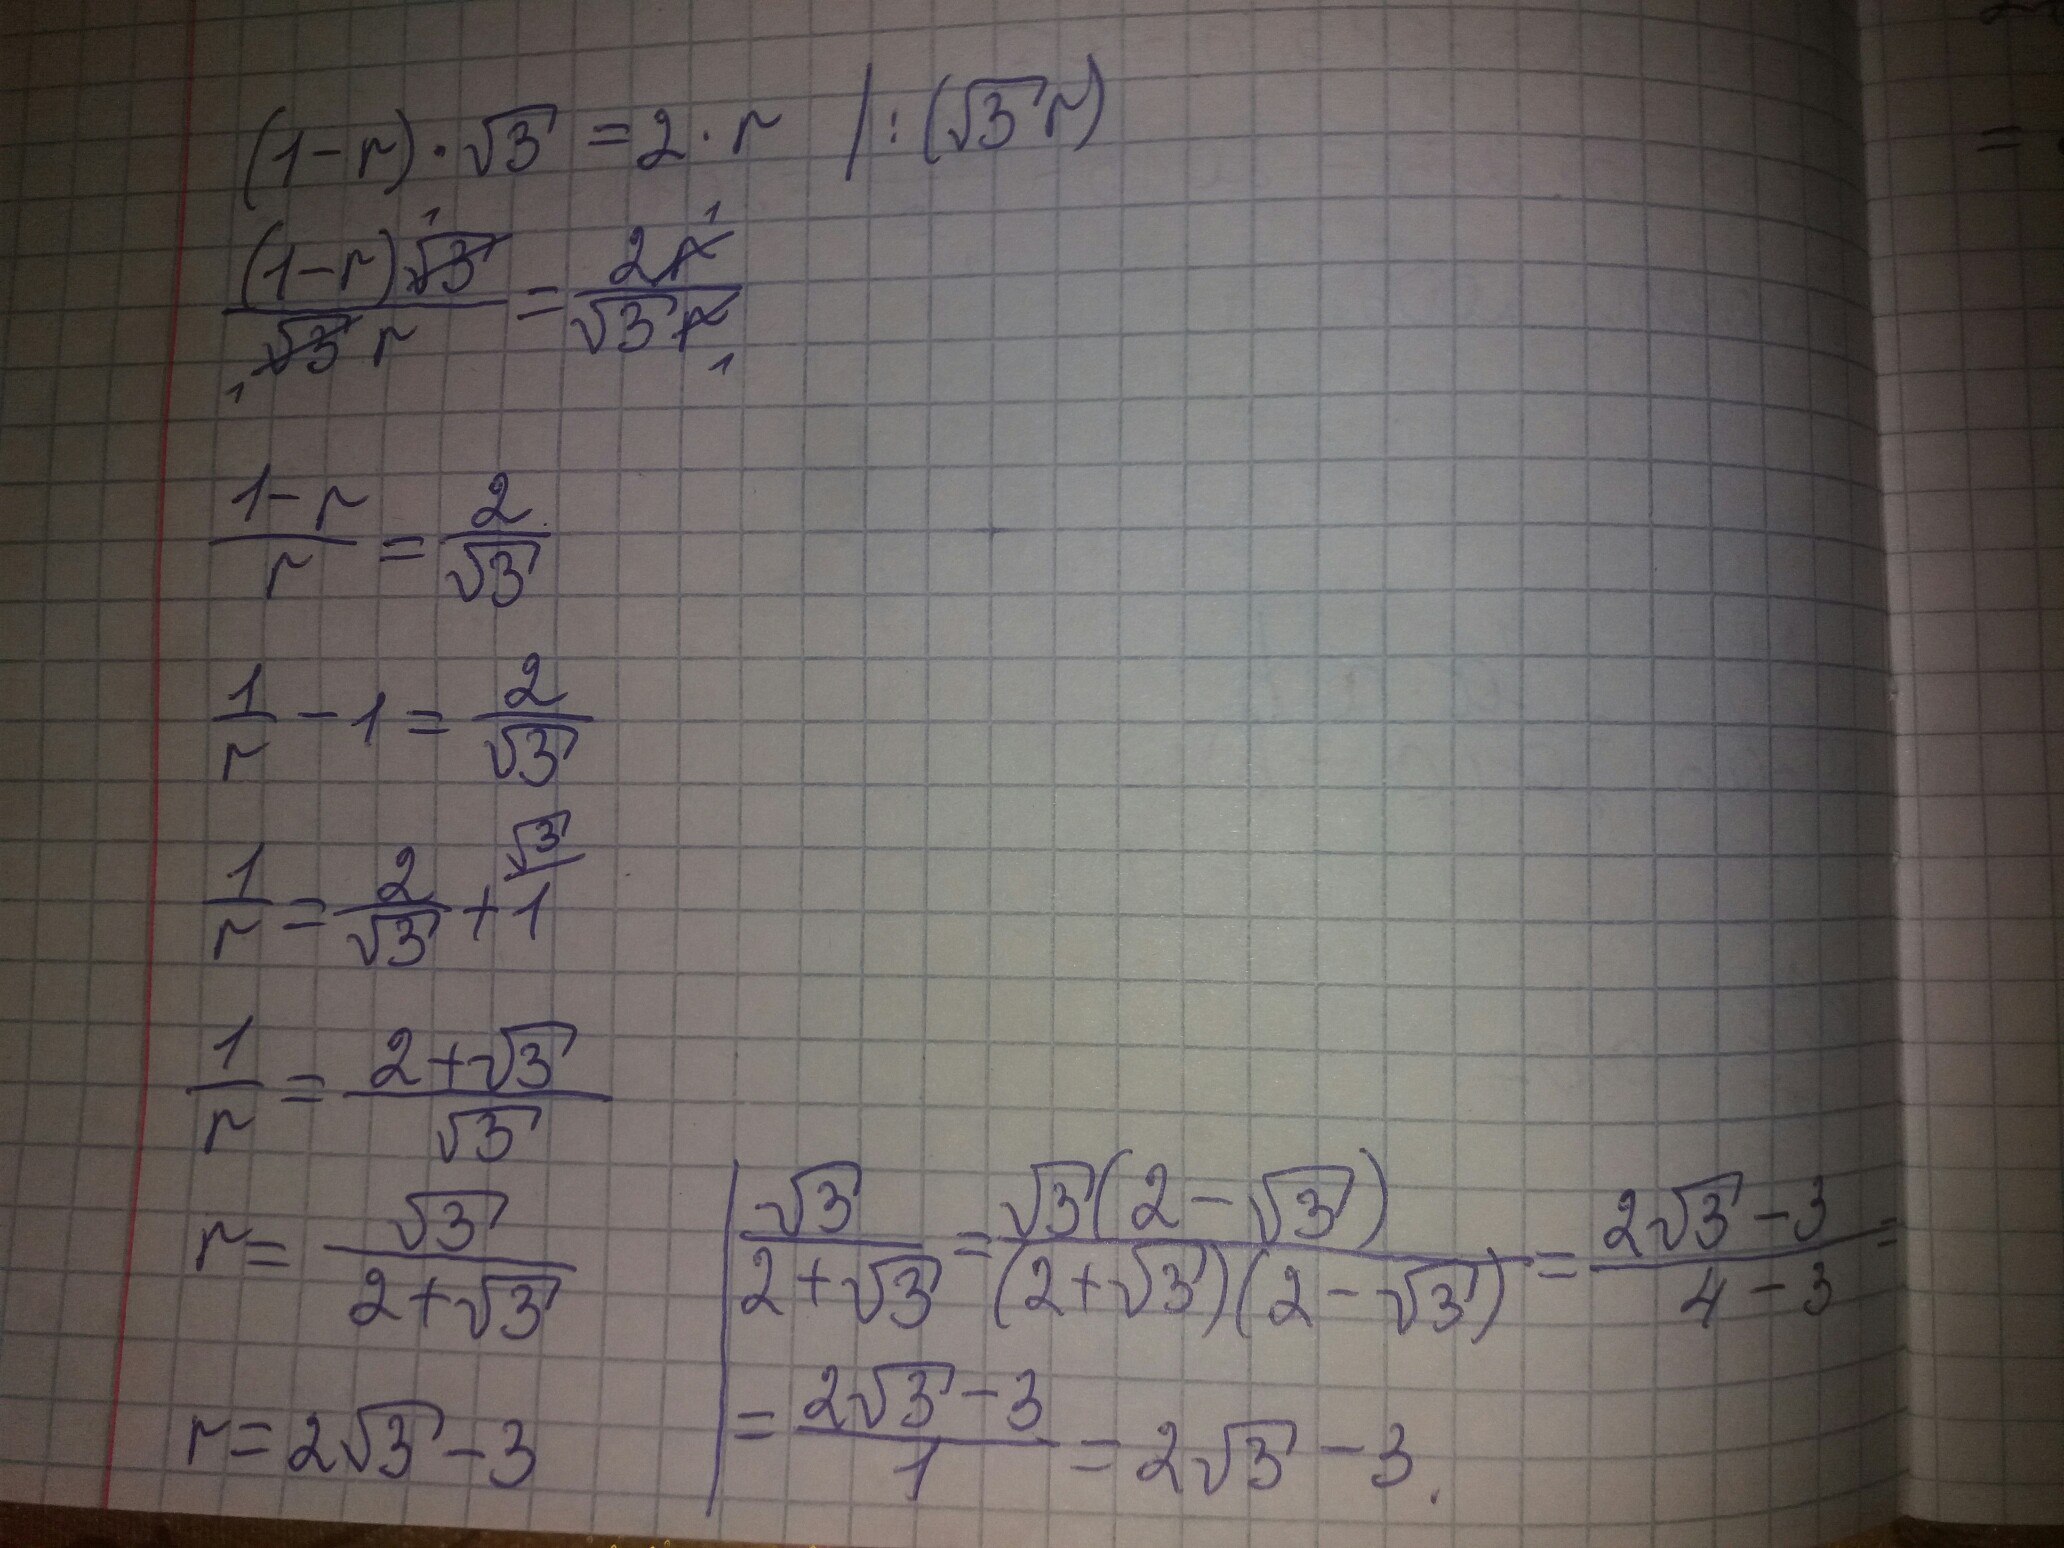 (1-r)·√3 = 2·r |:(√3 r)
(1-r)√3 / √3 r = 2r / √3 r
1-r / r = 2 / √3
1/r - 1 = 2/√3
1/r = 2/√3 + 1 √3
1/r = 2+√3 / √3
r = √3 / 2+√3
r = 2√3 - 3
√3 / 2+√3 = √3(2-√3) / (2+√3)(2-√3) = 2√3-3 / 4-3 =
= 2√3-3 / 1 = 2√3-3.